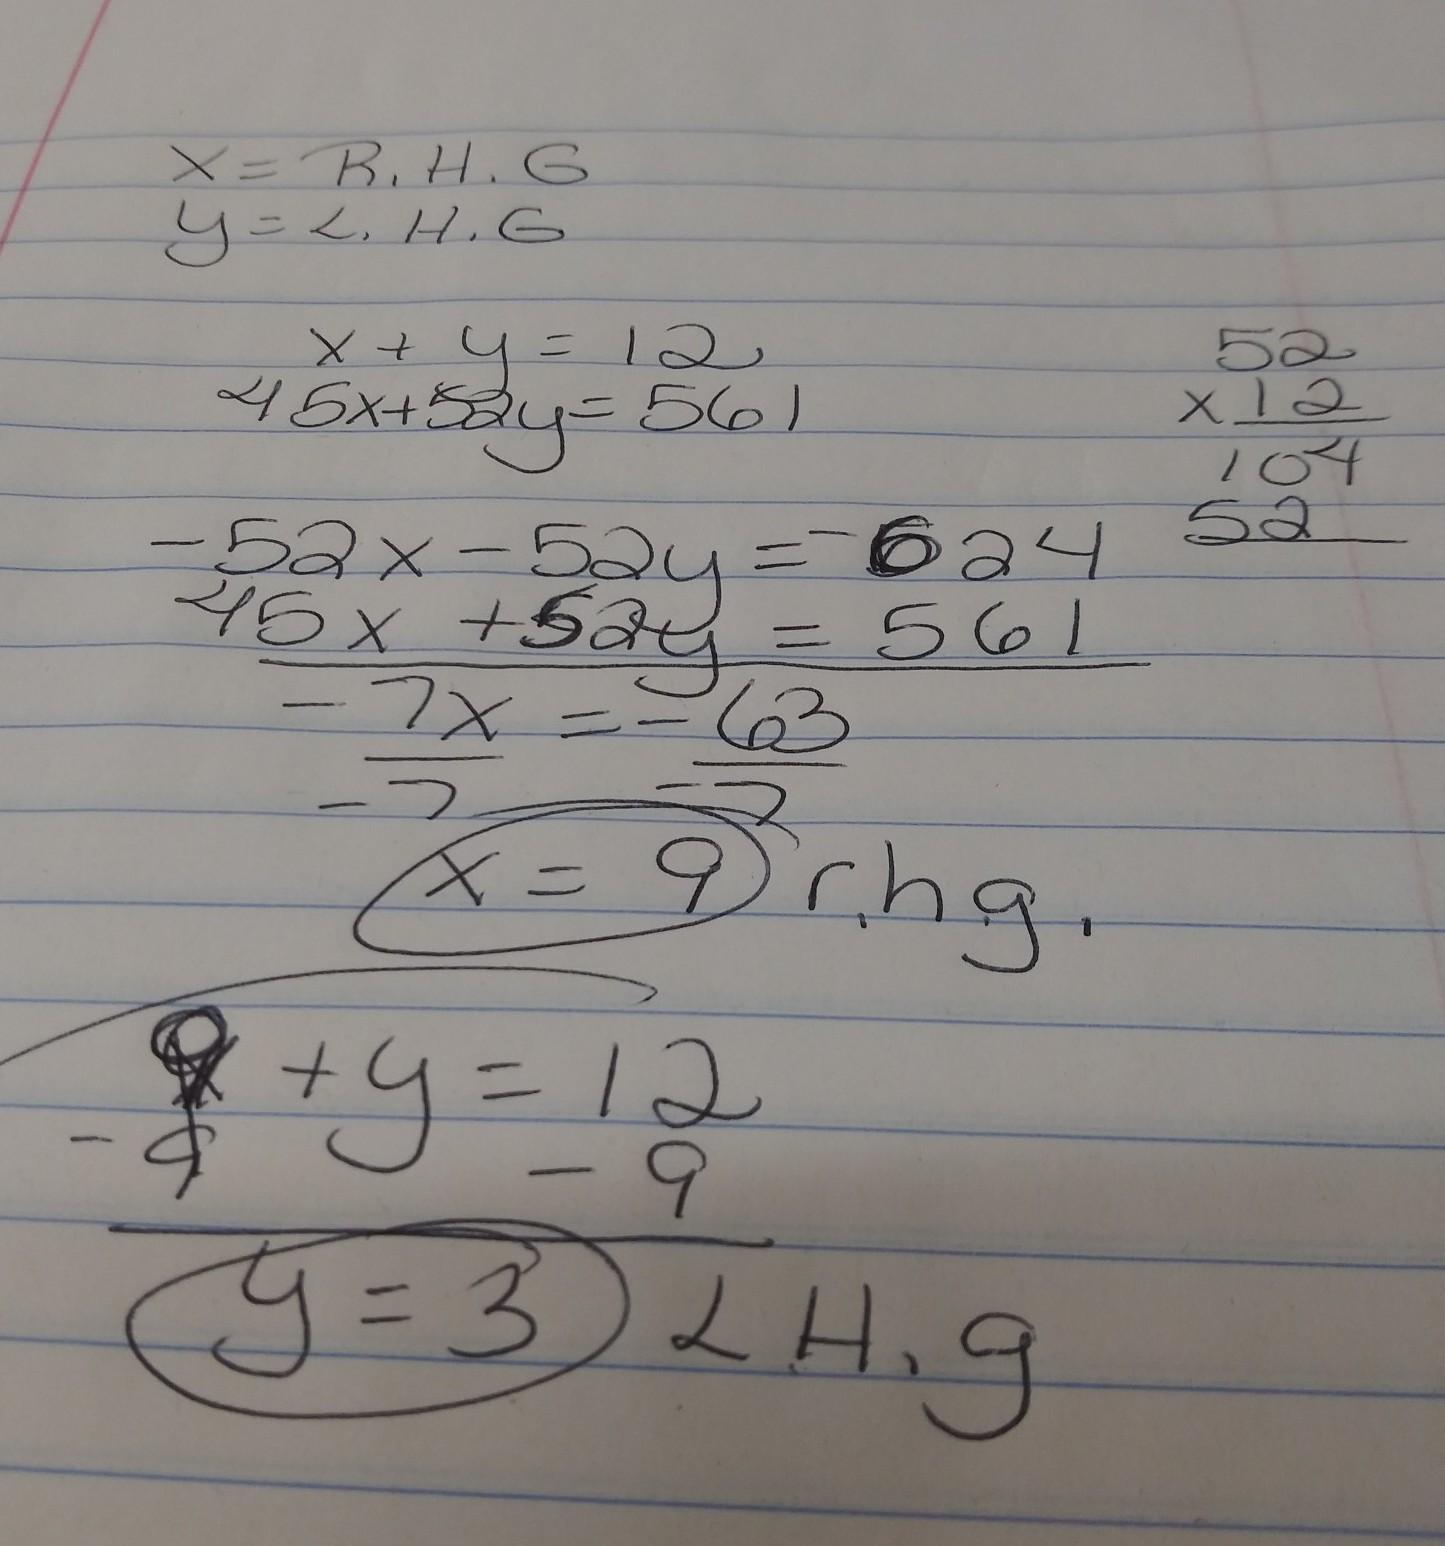 x = R. H. G
y = L. H. G
x + y = 12
45x+52y= 561
52
x 12
104
52
-52x - 52y = -624
45x +52y = 561
-7x = -63
-7 -7
x = 9 r.h.g.
9 + y = 12
-9 -9
y = 3 L.H.g